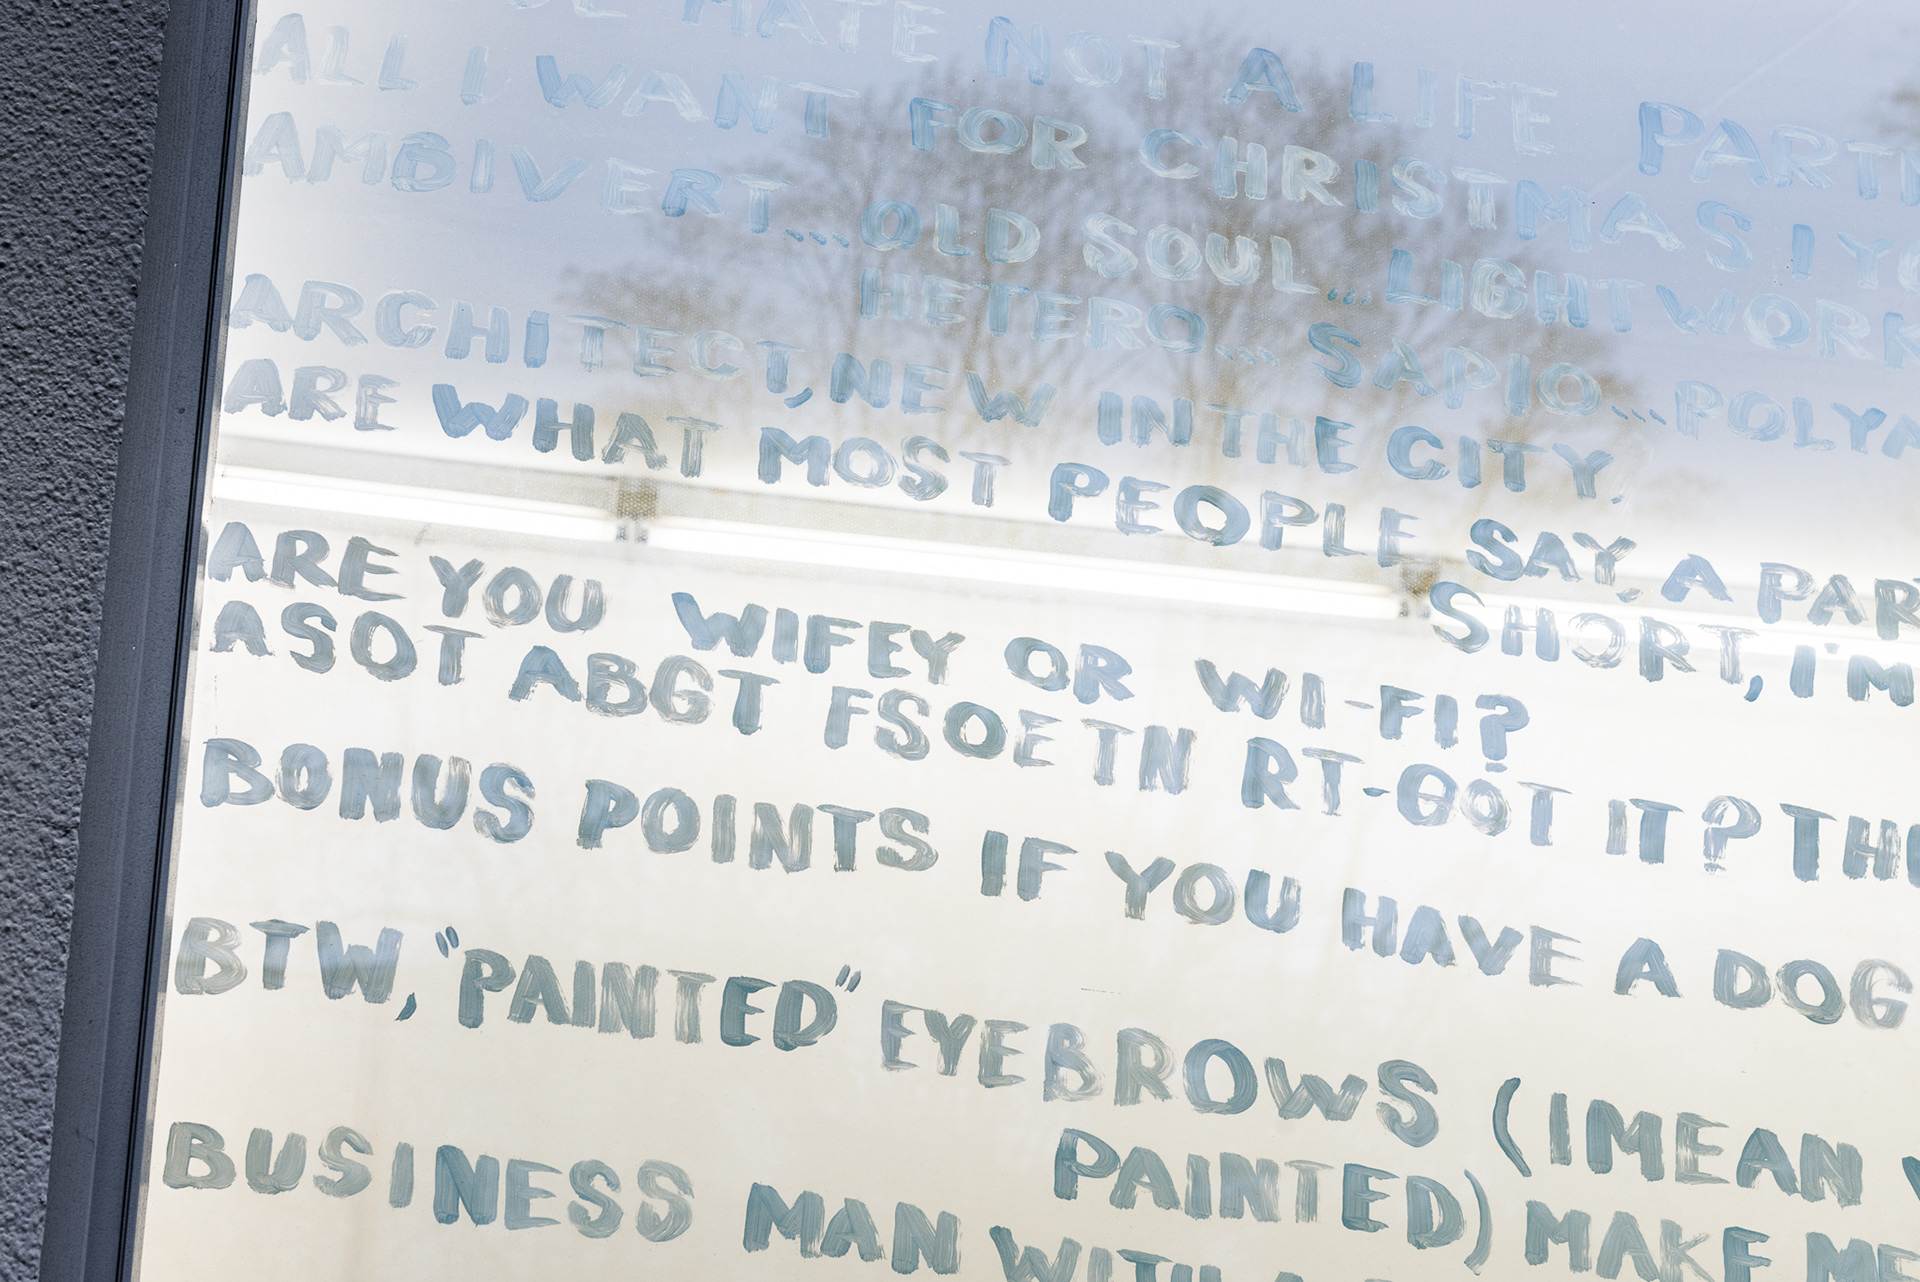 HATE NOT A LIFE PARTN
ALL I WANT FOR CHRISTMAS I YO
AMBIVERT... OLD SOUL... LIGHTWORK
HETERO... SAPIO... POLYA
ARCHITECT, NEW IN THE CITY.
ARE WHAT MOST PEOPLE SAY. A PAR
SHORT, I'M
ARE YOU WIFEY OR WI-FI?
ASOT ABGT FSOETN RT-GOT IT? THE
BONUS POINTS IF YOU HAVE A DOG
BTW, "PAINTED" EYEBROWS (I MEAN
PAINTED) MAKE ME
BUSINESS MAN WITH